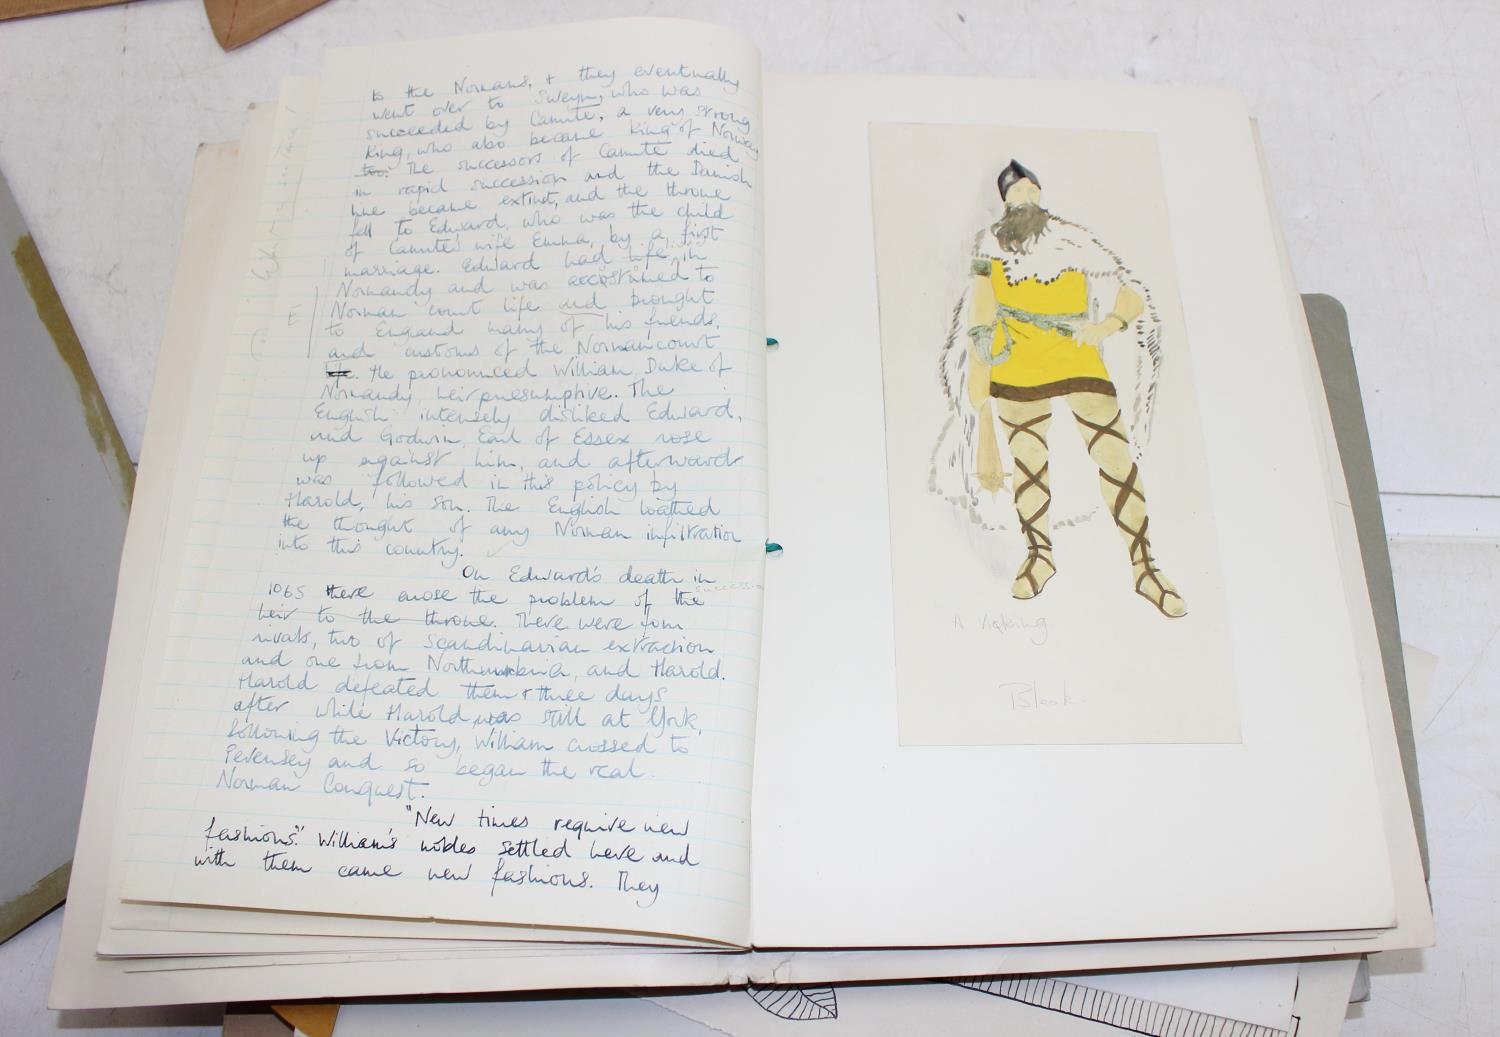 to the Normans, + they eventually
went over to Sweyn, who was
succeeded by Canute, a very strong
King, who also became King of Norway
too. The successors of Canute died
in rapid succession and the Danish
line became extinct, and the throne
fell to Edward, who was the child
of Canute's wife Emma, by a first
marriage. Edward had life, in
Normandy and was accustomed to
Norman court life and brought
to England many of his friends,
and customs of the Norman court
life. He pronounced William, Duke of
Normandy, heir presumptive. The
English intensely disliked Edward,
and Godwin, Earl of Essex rose
up against him, and afterward
was followed in this policy by
Harold, his son. The English loathed
the thought of any Norman infiltration
into this country.
On Edward's death in
1065 there arose the problem of the succession
heir to the throne. There were four
rivals, two of Scandinavian extraction
and one from Northumbria, and Harold.
Harold defeated them + three days
after while Harold was still at York,
following the Victory, William crossed to
Pevensey and so began the real
Norman Conquest.
"New times require new
fashions". William's nobles settled here and
with them came new fashions. They
A Viking